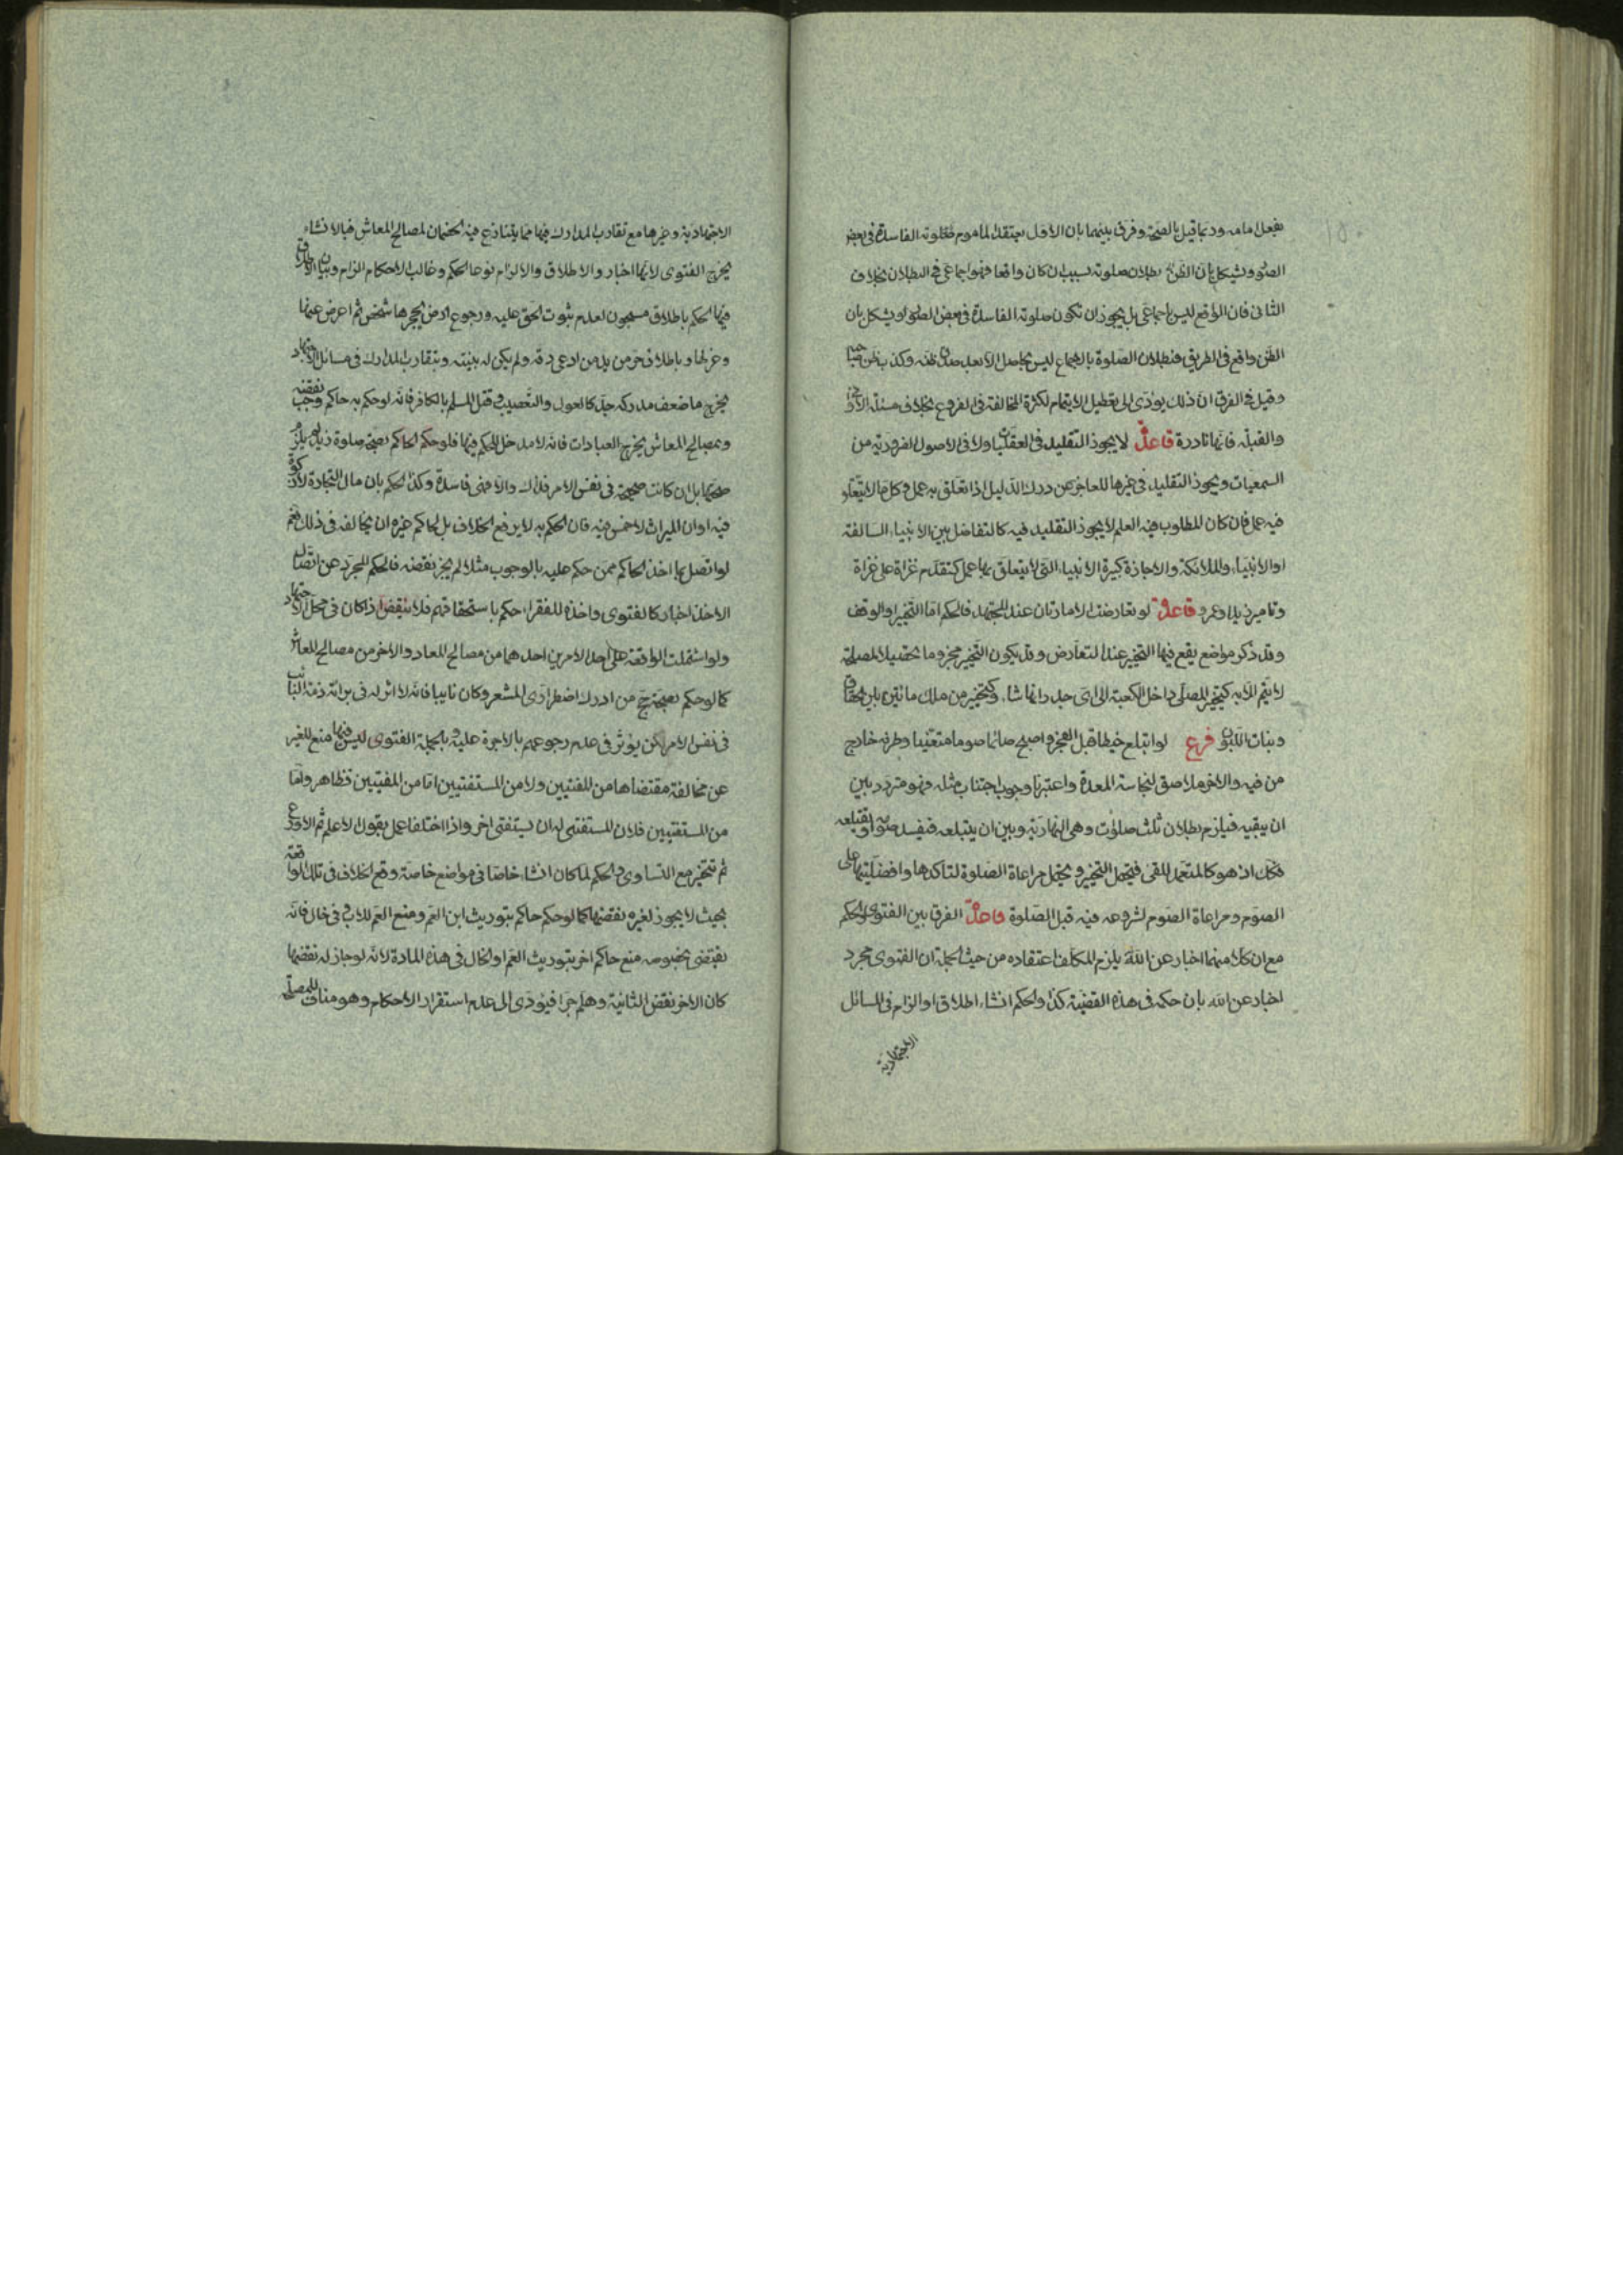 بفعل امامه وربما قيل بالصحة وفرق بينهما بان الاول يعتقد الماموم فصلوته الفاسدة في بعض
الصور ويشكل بان الظن بطلان صلوته بسببه ان كان واقعا فهو اجماعي في البطلان بخلاف
الثاني فان الواقع ليس باجماعي بل يجوز ان تكون صلوته الفاسدة في بعض الصور او يشكل بان
الظن واقع في الطريق فبطلان الصلوة بالاجماع ليس بحاصل الا بعد صدق ظنه وكذب ظن صاحبه
وقيل في الفرق ان ذلك يؤدى الى تعطيل الايتمام لكثرة المخالفة في الفروع بخلاف مسئلة الاواني
والقبلة فانها نادرة قاعدة لا يجوز التقليد في العقليات ولا في الاصول الضرورية من
السمعيات ويجوز التقليد في غيرها للعاجز عن درك الدليل اذا تعلق به عمل وكل ما لا يتعلق
فيه عمل فان كان المطلوب فيه العلم لا يجوز التقليد فيه كالتفاضل بين الانبياء السالفة
او الانبياء والملائكة والاجازة كبيرة الانبياء التي لا يتعلق بها عمل كتقدم غزاة على غزاة
وتامير زيد او عمرو قاعدة لو تعارضت الامارتان عند المجتهد فالحكم اما التخيير او الوقف
وقد ذكر مواضع يقع فيها التخيير عند التعارض وقد يكون التخيير مجزوما به تحصيلا لمصلحة
لا يتم الا به كتخير المصلي داخل الكعبة الى اى جدرانها شاء وكتخيير من ملك مائتين بين الحقاق
وبنات اللبون فرع لو ابتلع خيطا قبل الفجر واصبح صائما صوما متعينا وطرفه خارج
من فيه والاخر ملاصق لنجاسة المعدة واعتبرنا وجوب اجتناب مثله فهو متردد بين
ان يبقيه فيلزم بطلان ثلث صلوات وهي النهارية وبين ان يبتلعه فيفسد صومه او يقتلعه
فكك اذ هو كالمتعمد للقئ فيحتمل التخيير ويحتمل مراعاة الصلوة لتاكدها وافضليتها على
الصوم ومراعاة الصوم لشروعه فيه قبل الصلوة قاعدة الفرق بين الفتوى والحكم
مع ان كلا منهما اخبار عن الله يلزم المكلف اعتقاده من حيث الجملة ان الفتوى مجرد
اخبار عن الله بان حكمه في هذه القضية كذا والحكم انشاء اطلاق او الزام في المسائل
الاجتهادية
الاجتهادية وغيرها مع تقارب المدارك فيها مما يتنازع فيه الخصمان لمصالح المعاش فبالانشاء
يخرج الفتوى لانها اخبار والاطلاق والالزام نوعا الحكم وغالب الاحكام الزام وبيان الاطلاق
فيها الحكم باطلاق مسجون لعدم ثبوت الحق عليه ورجوع ارض يحجرها شخص ثم اعرض عنها
وعطلها وباطلاق حر من يد من ادعى رقه ولم يكن له بينة وبتقارب المدارك في مسائل الاجتهاد
يخرج ما ضعف مدركه جدا كالعول والتعصيب وقتل المسلم بالكافر فانه لو حكم به حاكم وجب نقضه
وبمصالح المعاش يخرج العبادات فانه لا مدخل للحكم فيها فلو حكم الحاكم بصحة صلوة زيد لم يلزم
صحتها بل ان كانت صحيحة في نفس الامر فذاك والا فهى فاسدة وكذا الحكم بان مال التجارة لا زكوة
فيه او ان الميراث لا خمس فيه فان الحكم به لا يرفع الخلاف بل لحاكم غيره ان يخالفه في ذلك نعم
لو اتصل بها اخذ الحاكم ممن حكم عليه بالوجوب مثلا لم يجز نقضه فالحكم المجرد عن اتصال
الاخذ اخبار كالفتوى واخذه للفقراء حكم باستحقاقهم فلا ينقض اذا كان في محل الاجتهاد
ولو اشتملت الواقعة على احد الامرين احدهما من مصالح المعاد والاخر من مصالح المعاش
كما لو حكم بصحة حج من ادرك اضطراري المشعر وكان نايبا فانه لا اثر له في برائة ذمة النائب
في نفس الامر لكن يؤثر في عدم رجوعهم بالاجرة عليه وبالجملة الفتوى ليس فيها منع للغير
عن مخالفة مقتضاها من المفتيين ولا من المستفتيين اما من المفتيين فظاهر واما
من المستفتيين فلان للمستفتى له ان يستفتى اخر واذا اختلفا عمل بقول الاعلم ثم الاورع
ثم تتخير مع التساوى والحكم لما كان انشاء خاصا في مواضع خاصة وقع الخلاف في تلك الواقعة
بحيث لا يجوز لغيره نقضها كما لو حكم حاكم بتوريث ابن العم ومنع العم للاب في خال فانه
يقتضى بخصوصه منع حاكم اخر بتوريث العم او الخال في هذه المادة لانه لو جاز له نقضها
كان الاخر نقض الثانية وهلم جرا فيؤدى الى عدم استقرار الاحكام وهو مناف للمصلحة